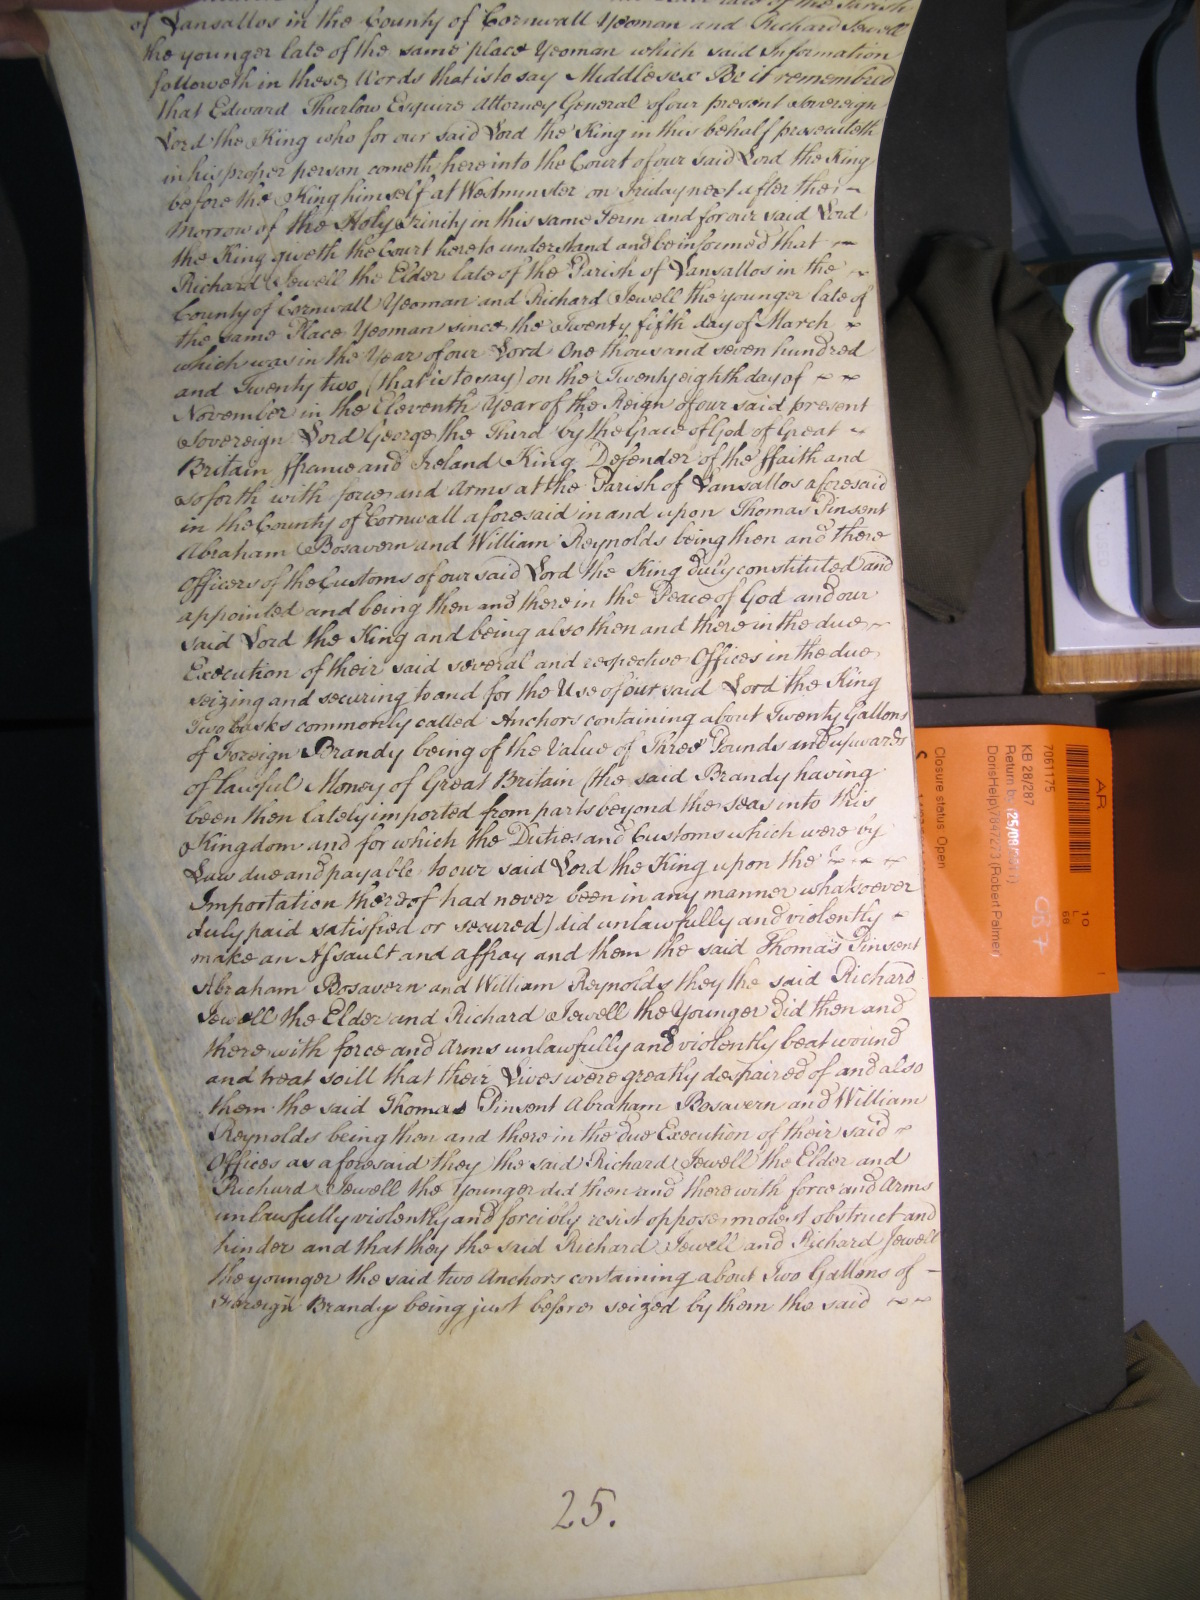 of the Parish
of Lansallos in the County of Cornwall Yeoman and Richard Jewell
the younger late of the same place Yeoman which said Information
followeth in these Words that is to say Middlesex Be it remembred
that Edward Thurlow Esquire Attorney General of our present Sovereign
Lord the King who for our said Lord the King in this behalf prosecuteth
in his proper person cometh here into the Court of our said Lord the King
before the King himself at Westminster on Friday next after the
Morrow of the Holy Trinity in this same Term and for our said Lord
the King giveth the Court here to understand and be informed that
Richard Jewell the Elder late of the Parish of Lansallos in the
County of Cornwall Yeoman and Richard Jewell the younger late of
the same Place Yeoman since the Twenty fifth day of March
which was in the Year of our Lord One thousand seven hundred
and Twenty two (that is to say) on the Twenty eighth day of
November in the Eleventh Year of the Reign of our said present
Sovereign Lord George the Third by the Grace of God of Great
Britain ffrance and Ireland King Defender of the ffaith and
so forth with force and Arms at the Parish of Lansallos aforesaid
in the County of Cornwall aforesaid in and upon Thomas Pinsent
Abraham Bosavern and William Reynolds being then and there
Officers of the Customs of our said Lord the King duly constituted and
appointed and being then and there in the Peace of God and our
said Lord the King and being also then and there in the due
Execution of their said several and respective Offices in the due
seizing and securing to and for the Use of our said Lord the King
Two Casks commonly called Anchors containing about Twenty Gallons
of Foreign Brandy being of the Value of Three Pounds and upwards
of lawful Money of Great Britain (the said Brandy having
been then lately imported from parts beyond the seas into this
Kingdom and for which the Duties and Customs which were by
Law due and payable to our said Lord the King upon the
Importation thereof had never been in any manner whatsoever
duly paid satisfied or secured) did unlawfully and violently
make an Assault and affray and them the said Thomas Pinsent
Abraham Bosavern and William Reynolds they the said Richard
Jewell the Elder and Richard Jewell the Younger did then and
there with force and Arms unlawfully and violently beat wound
and treat so ill that their Lives were greatly despaired of and also
them the said Thomas Pinsent Abraham Bosavern and William
Reynolds being then and there in the due Execution of their said
Offices as aforesaid they the said Richard Jewell the Elder and
Richard Jewell the Younger did then and there with force and Arms
unlawfully violently and forcibly resist oppose molest obstruct and
hinder and that they the said Richard Jewell and Richard Jewell
the younger the said two Anchors containing about Two Gallons of
Foreign Brandy being just before seized by them the said
25.
AR
7061175
KB 28/287
Return by 25/08
DorisHelpV7847273 Robert Palmer
Closure status: Open
10
L
66